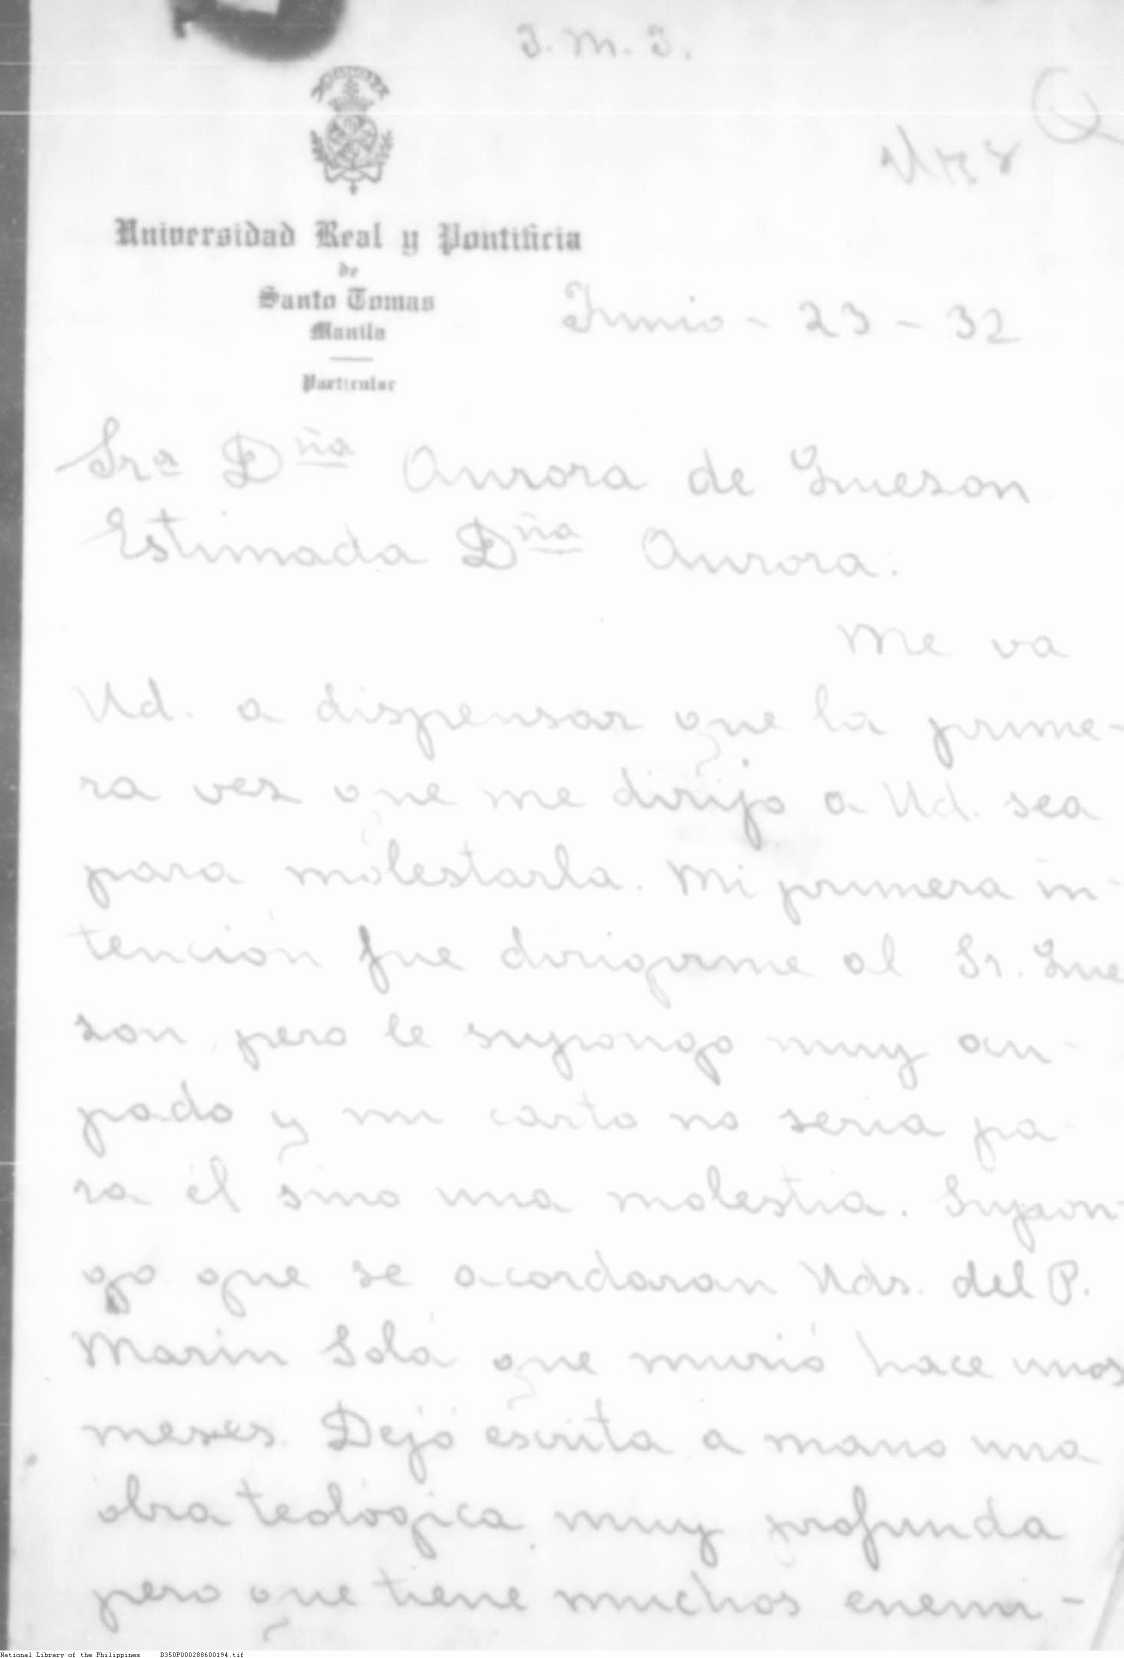 J. M. J.
Universidad Real y Pontificia
de
Santo Tomas
Manila
Particular
Junio - 23 - 32
Sra Dña Aurora de Quezon
Estimada Dña Aurora.
Me va
Ud. a dispensar que la prime-
ra vez que me dirijo a Ud. sea
para molestarla. Mi primera in-
tención fue dirigirme al Sr. Que
zon, pero le supongo muy ocu-
pado y mi carta no seria pa-
ra él sino una molestia. Supon-
go que se acordaran Uds. del P.
Marin Solá que murió hace unos
meses. Dejó escrita a mano una
obra teológica muy profunda
pero que tiene muchos enemi-
National Library of the Philippines D350P000288600194.tif